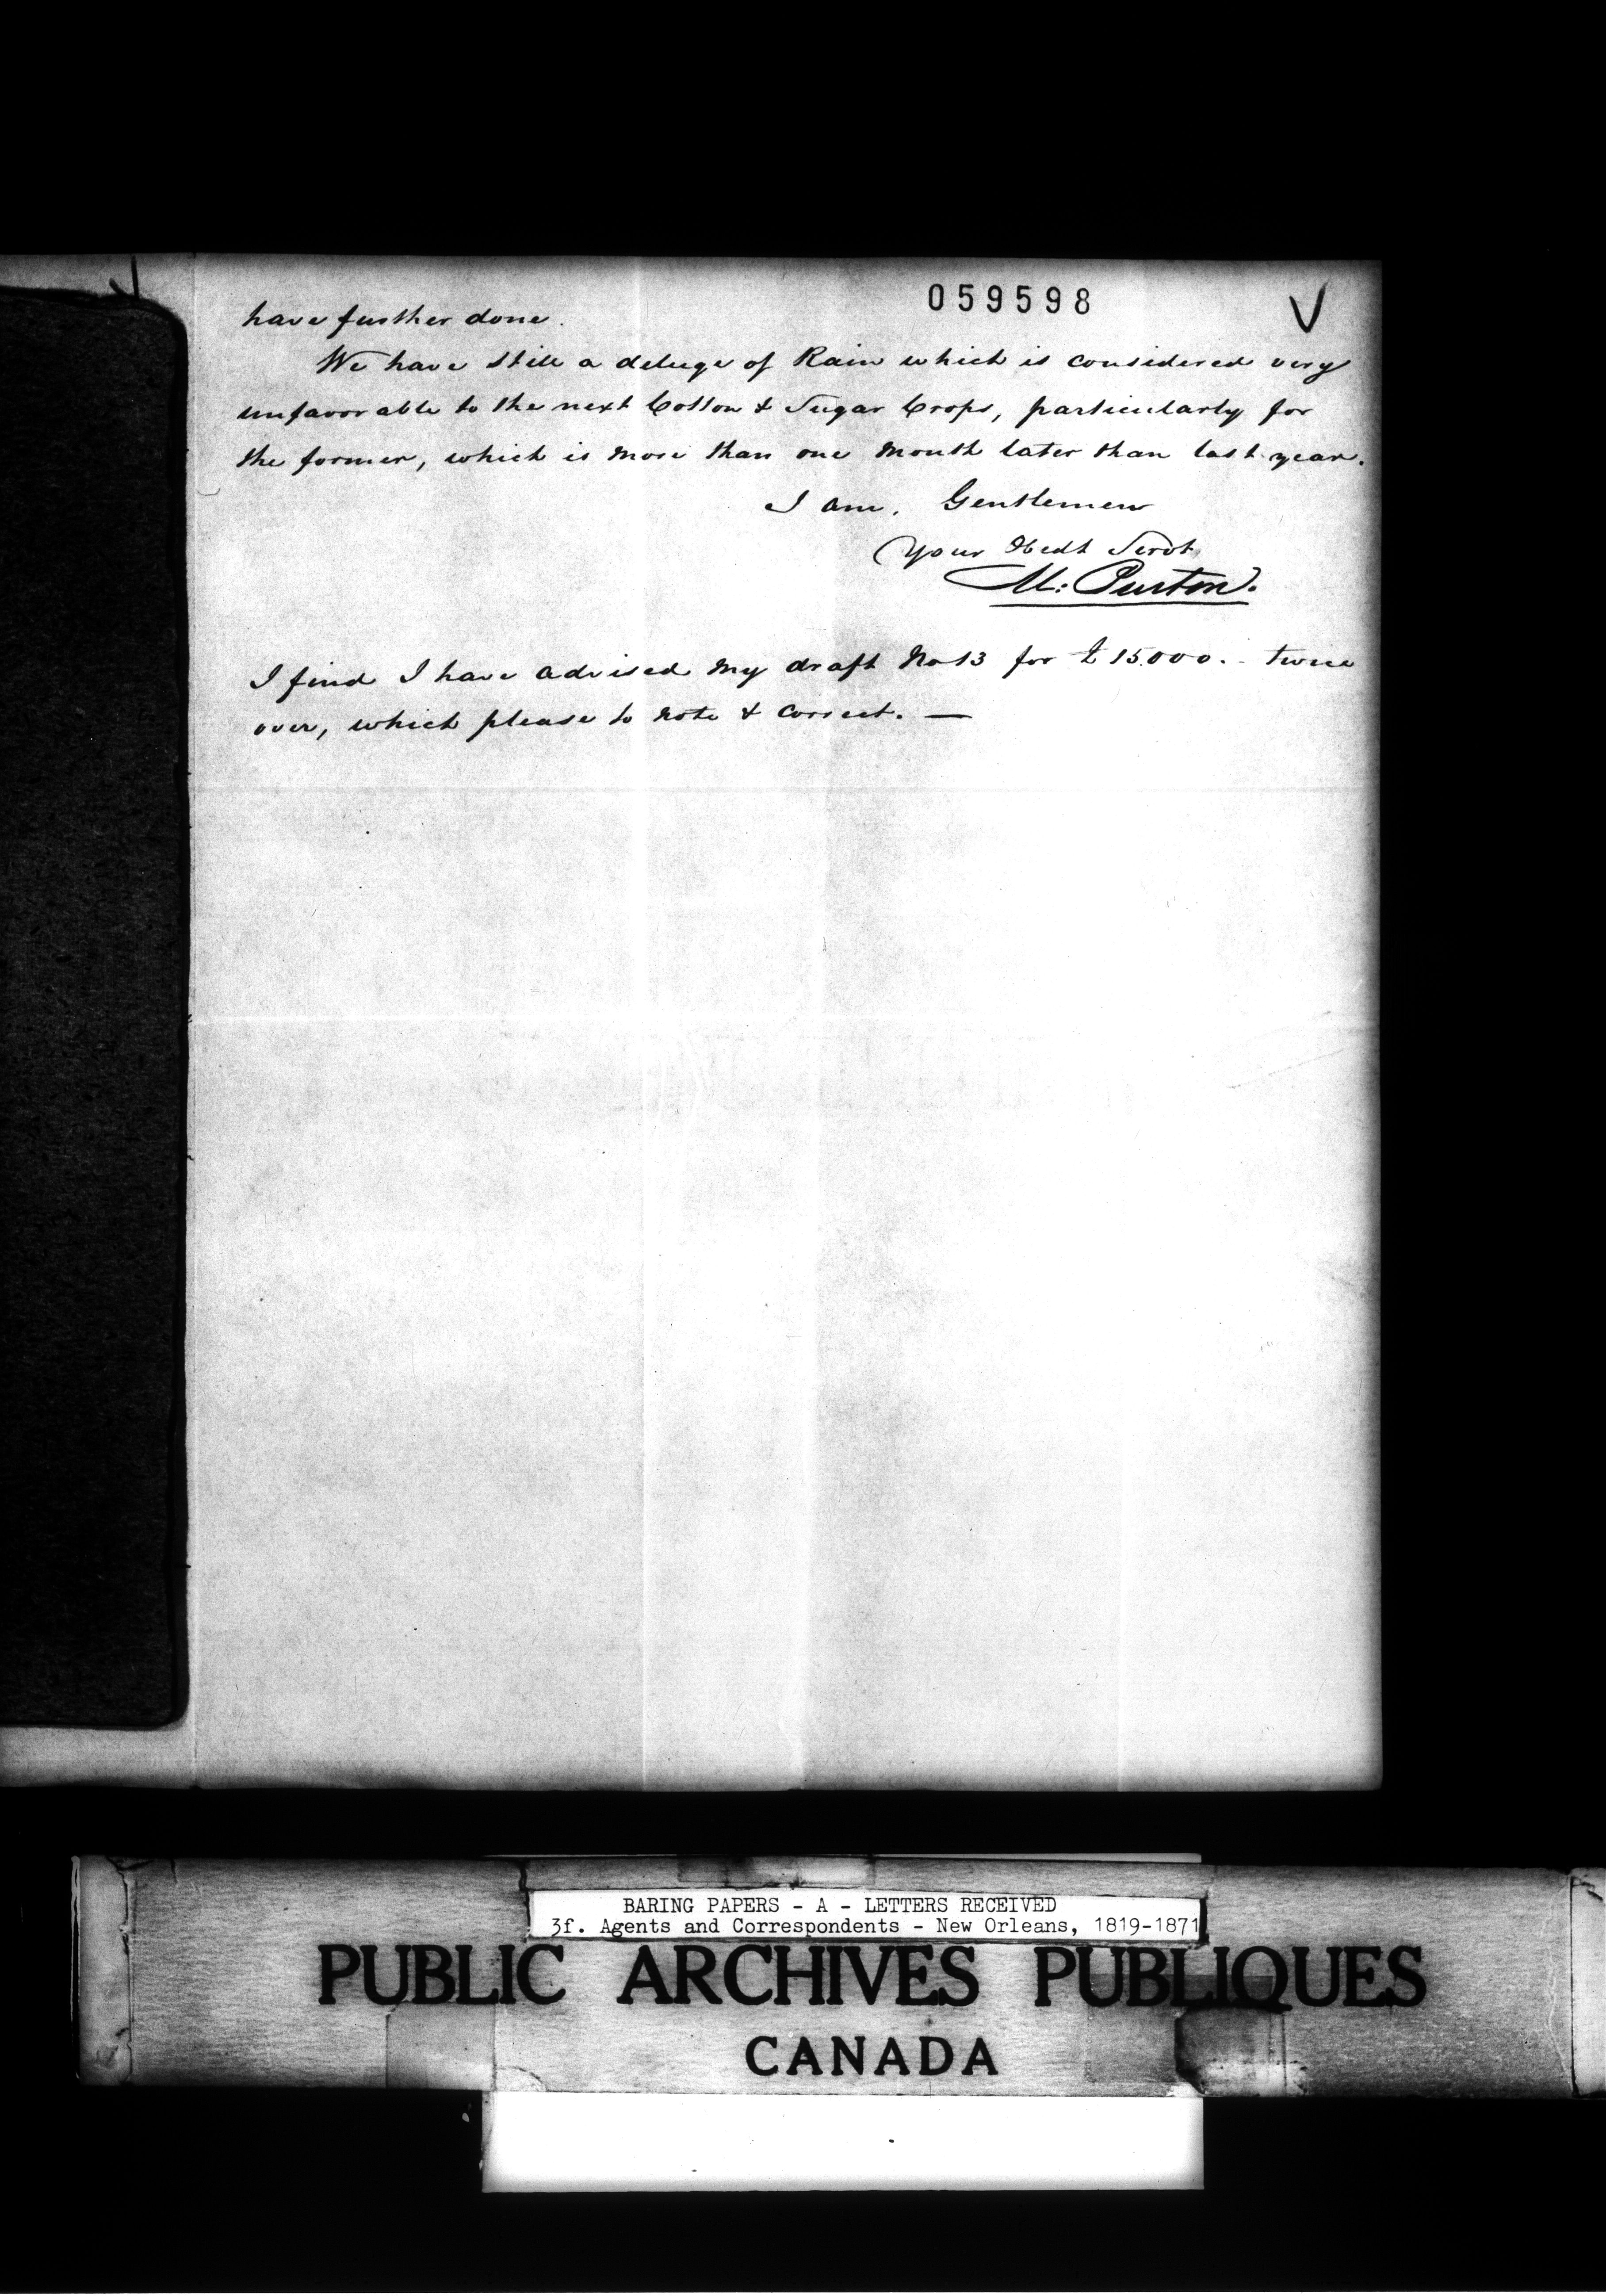 059598
V
have further done.
We have still a deluge of Rain which is considered very
unfavorable to the next Cotton & Sugar Crops, particularly for
the former, which is more than one month later than last year.
I am, Gentlemen
Your Obedt Servt
M: Purton.
I find I have advised my draft No 13 for £15.000.- twice
over, which please to note & correct. —
BARING PAPERS - A - LETTERS RECEIVED
3f. Agents and Correspondents - New Orleans, 1819-1871
PUBLIC ARCHIVES PUBLIQUES
CANADA